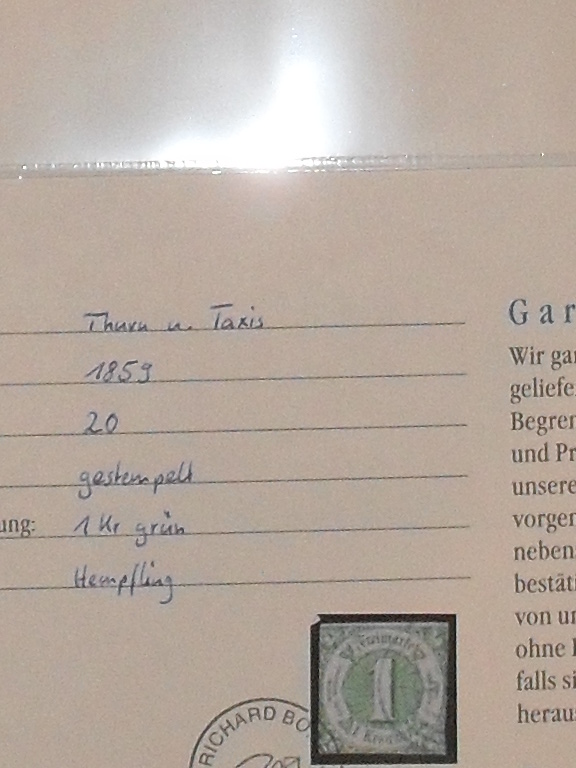 Thurn u. Taxis
1859
20
gestempelt
ung: 1 Kr grün
Hempfling
Gar
Wir gar
geliefe
Begren
und Pr
unsere
vorgen
neben
bestäti
von un
ohne
falls si
heraus
RICHARD BO
1